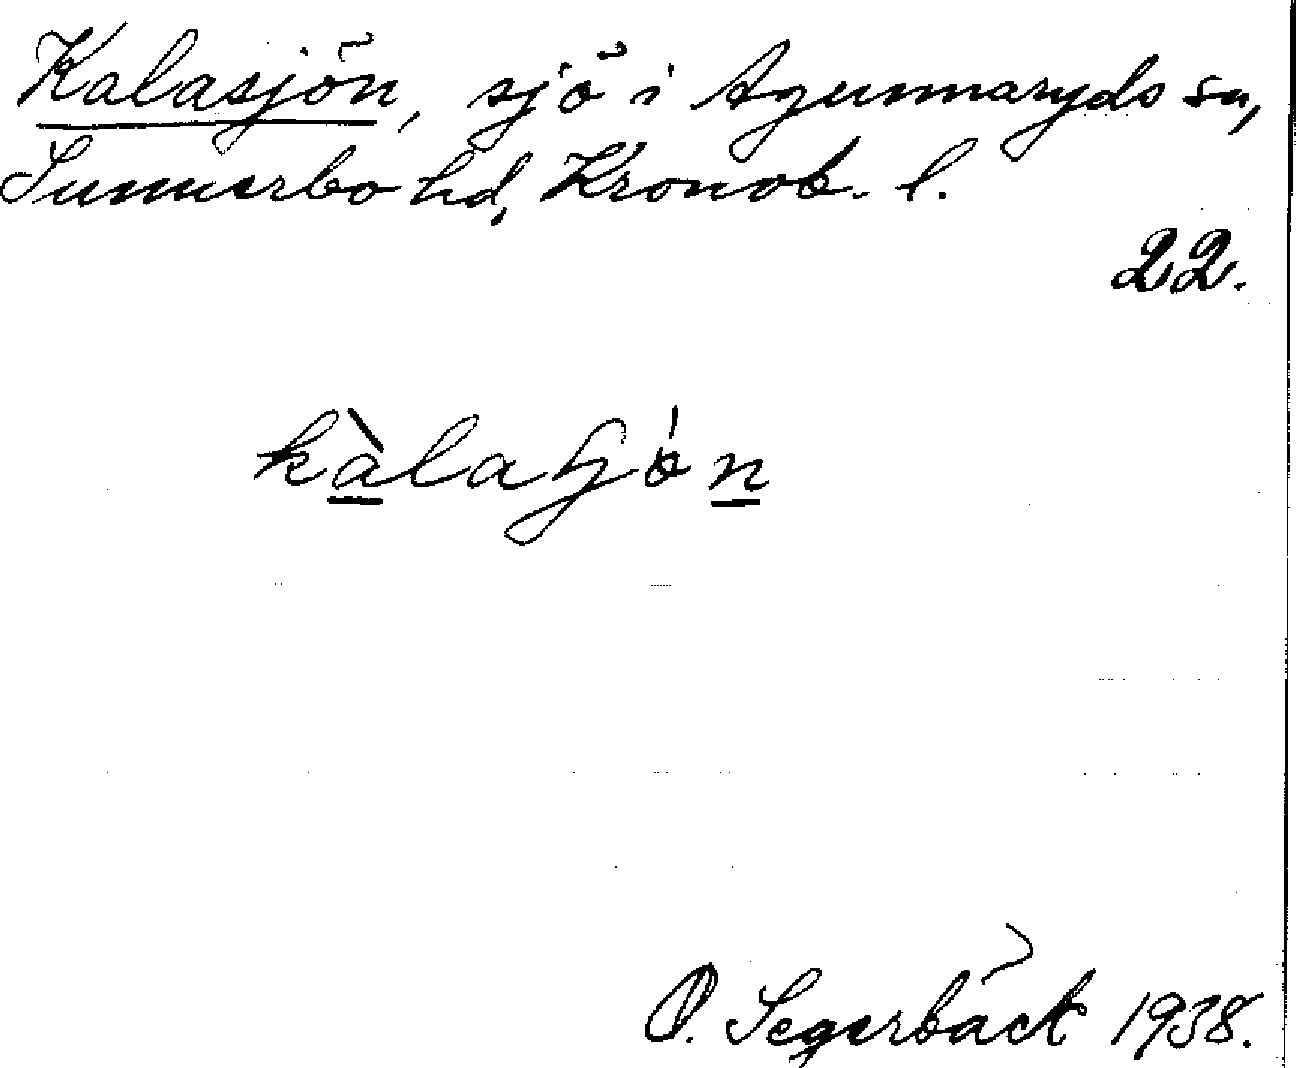 Kalasjön, sjö i Agunnaryds sn,
Sunnerbo hd, Kronob. l.
22.
kàlaʃjón
O. Segerbäck 1938.